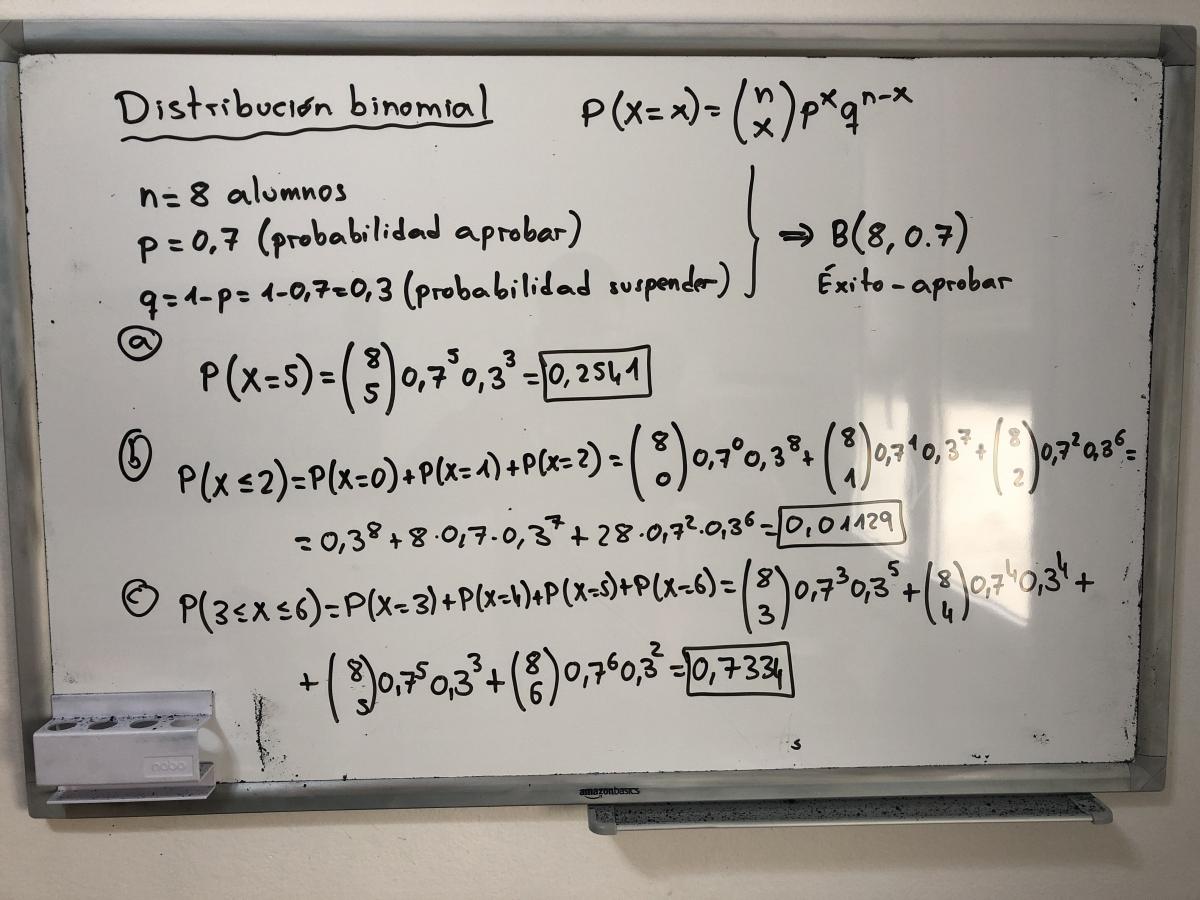 Distribución binomial P(X=x)=(n x)pˣqⁿ⁻ˣ
n=8 alumnos
p=0,7 (probabilidad aprobar) ⇒ B(8,0.7)
q=1-p=1-0,7=0,3 (probabilidad suspender) Éxito-aprobar
a
P(X=5)=(8 5)0,7⁵0,3³=0,2541
b P(X≤2)=P(X=0)+P(X=1)+P(X=2)=(8 0)0,7⁰0,3⁸+(8 1)0,7¹0,3⁷+(8 2)0,7²0,3⁶=
=0,3⁸+8·0,7·0,3⁷+28·0,7²·0,3⁶=0,01129
c P(3≤X≤6)=P(X=3)+P(X=4)+P(X=5)+P(X=6)=(8 3)0,7³0,3⁵+(8 4)0,7⁴0,3⁴+
+(8 5)0,7⁵0,3³+(8 6)0,7⁶0,3²=0,7334
s
nobo
amazonbasics